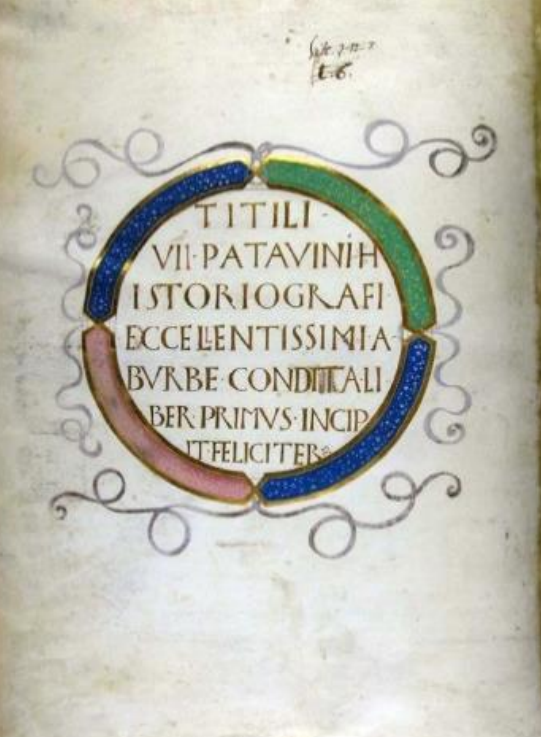 t. 6.
TITILI·
VII·PATAVINIH
ISTORIOGRAFI·
EXCELLENTISSIMI·A·
BVRBE·CONDITA·LI·
BER·PRIMVS·INCIP
IT·FELICITER